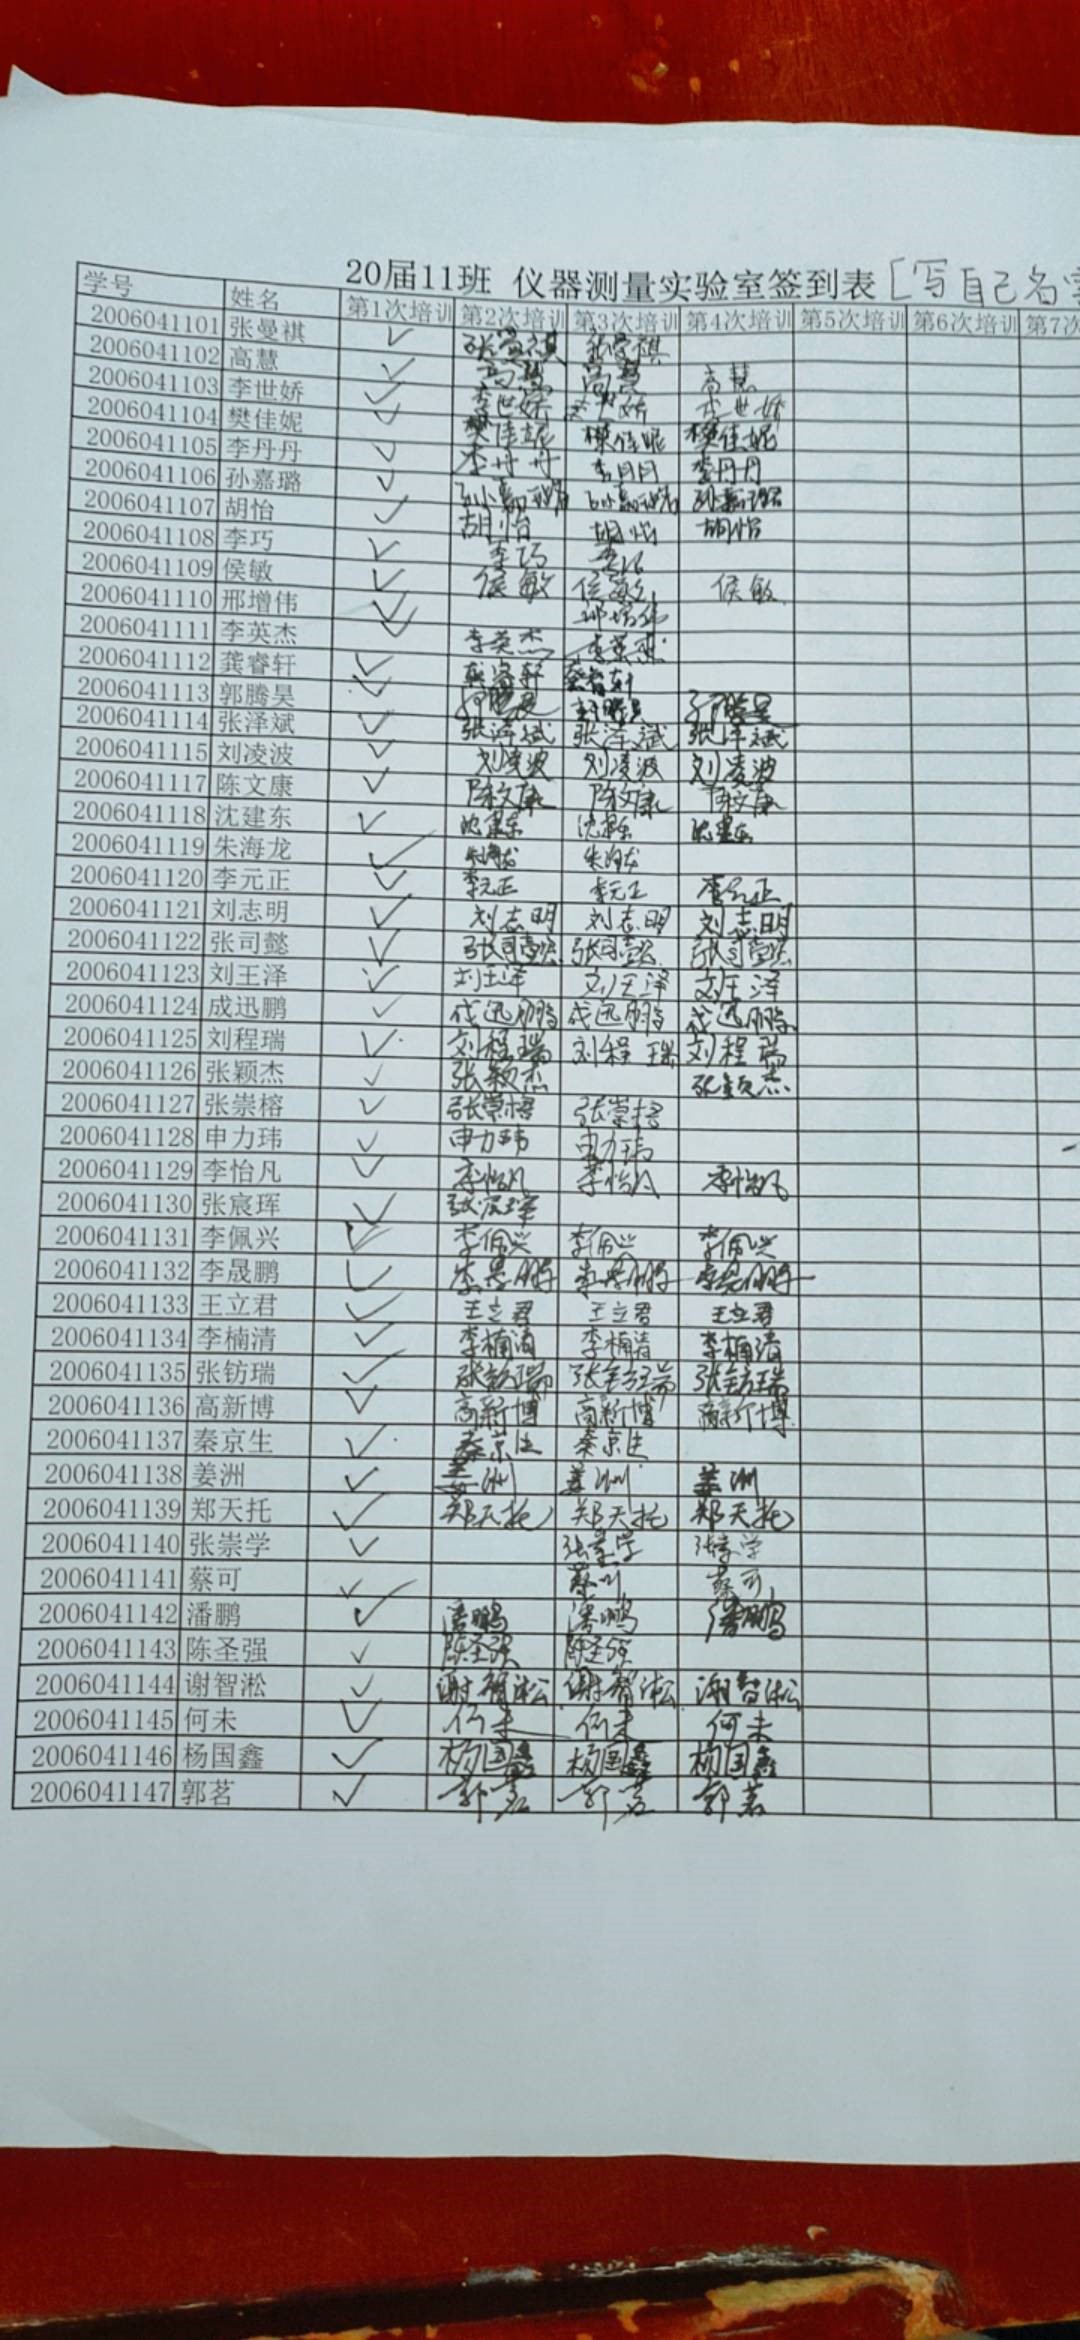 20届11班 仪器测量实验室签到表 [写自己名
学号 姓名 第1次培训 第2次培训 第3次培训 第4次培训 第5次培训 第6次培训 第7次
2006041101 张曼祺 ✓ 张曼祺 张曼祺
2006041102 高慧 ✓ 高慧 高慧 高慧
2006041103 李世娇 ✓ 李世娇 李世娇 李世娇
2006041104 樊佳妮 ✓ 樊佳妮 樊佳妮 樊佳妮
2006041105 李丹丹 ✓ 李丹丹 李丹丹 李丹丹
2006041106 孙嘉璐 ✓ 孙嘉璐 孙嘉璐 孙嘉璐
2006041107 胡怡 ✓ 胡怡 胡怡 胡怡
2006041108 李巧 ✓ 李巧 李巧
2006041109 侯敏 ✓ 侯敏 侯敏 侯敏
2006041110 邢增伟 ✓ 邢增伟
2006041111 李英杰 ✓ 李英杰 李英杰
2006041112 龚睿轩 ✓ 龚睿轩 龚睿轩
2006041113 郭腾昊 ✓ 郭腾昊 郭腾昊 郭腾昊
2006041114 张泽斌 ✓ 张泽斌 张泽斌 张泽斌
2006041115 刘凌波 ✓ 刘凌波 刘凌波 刘凌波
2006041117 陈文康 ✓ 陈文康 陈文康 陈文康
2006041118 沈建东 ✓ 沈建东 沈建东 沈建东
2006041119 朱海龙 ✓ 朱海龙 朱海龙
2006041120 李元正 ✓ 李元正 李元正 李元正
2006041121 刘志明 ✓ 刘志明 刘志明 刘志明
2006041122 张司懿 ✓ 张司懿 张司懿 张司懿
2006041123 刘王泽 ✓ 刘王泽 刘王泽 刘王泽
2006041124 成迅鹏 ✓ 成迅鹏 成迅鹏 成迅鹏
2006041125 刘程瑞 ✓ 刘程瑞 刘程瑞 刘程瑞
2006041126 张颖杰 ✓ 张颖杰 张颖杰
2006041127 张崇榕 ✓ 张崇榕 张崇榕
2006041128 申力玮 ✓ 申力玮 申力玮
2006041129 李怡凡 ✓ 李怡凡 李怡凡 李怡凡
2006041130 张宸珲 ✓ 张宸珲
2006041131 李佩兴 ✓ 李佩兴 李佩兴 李佩兴
2006041132 李晟鹏 ✓ 李晟鹏 李晟鹏 李晟鹏
2006041133 王立君 ✓ 王立君 王立君 王立君
2006041134 李楠清 ✓ 李楠清 李楠清 李楠清
2006041135 张钫瑞 ✓ 张钫瑞 张钫瑞 张钫瑞
2006041136 高新博 ✓ 高新博 高新博 高新博
2006041137 秦京生 ✓ 秦京生 秦京生
2006041138 姜洲 ✓ 姜洲 姜洲 姜洲
2006041139 郑天托 ✓ 郑天托 郑天托 郑天托
2006041140 张崇学 ✓ 张崇学 张崇学
2006041141 蔡可 ✓ 蔡可 蔡可
2006041142 潘鹏 ✓ 潘鹏 潘鹏 潘鹏
2006041143 陈圣强 ✓ 陈圣强 陈圣强
2006041144 谢智淞 ✓ 谢智淞 谢智淞 谢智淞
2006041145 何未 ✓ 何未 何未 何未
2006041146 杨国鑫 ✓ 杨国鑫 杨国鑫 杨国鑫
2006041147 郭茗 ✓ 郭茗 郭茗 郭茗